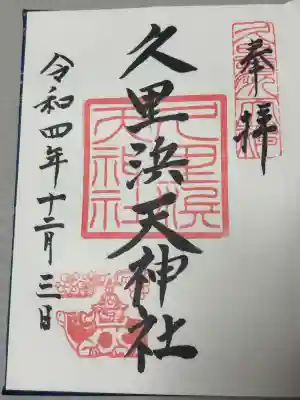 奉拝
久里浜天神社
令和四年十二月三日
久里浜天神社